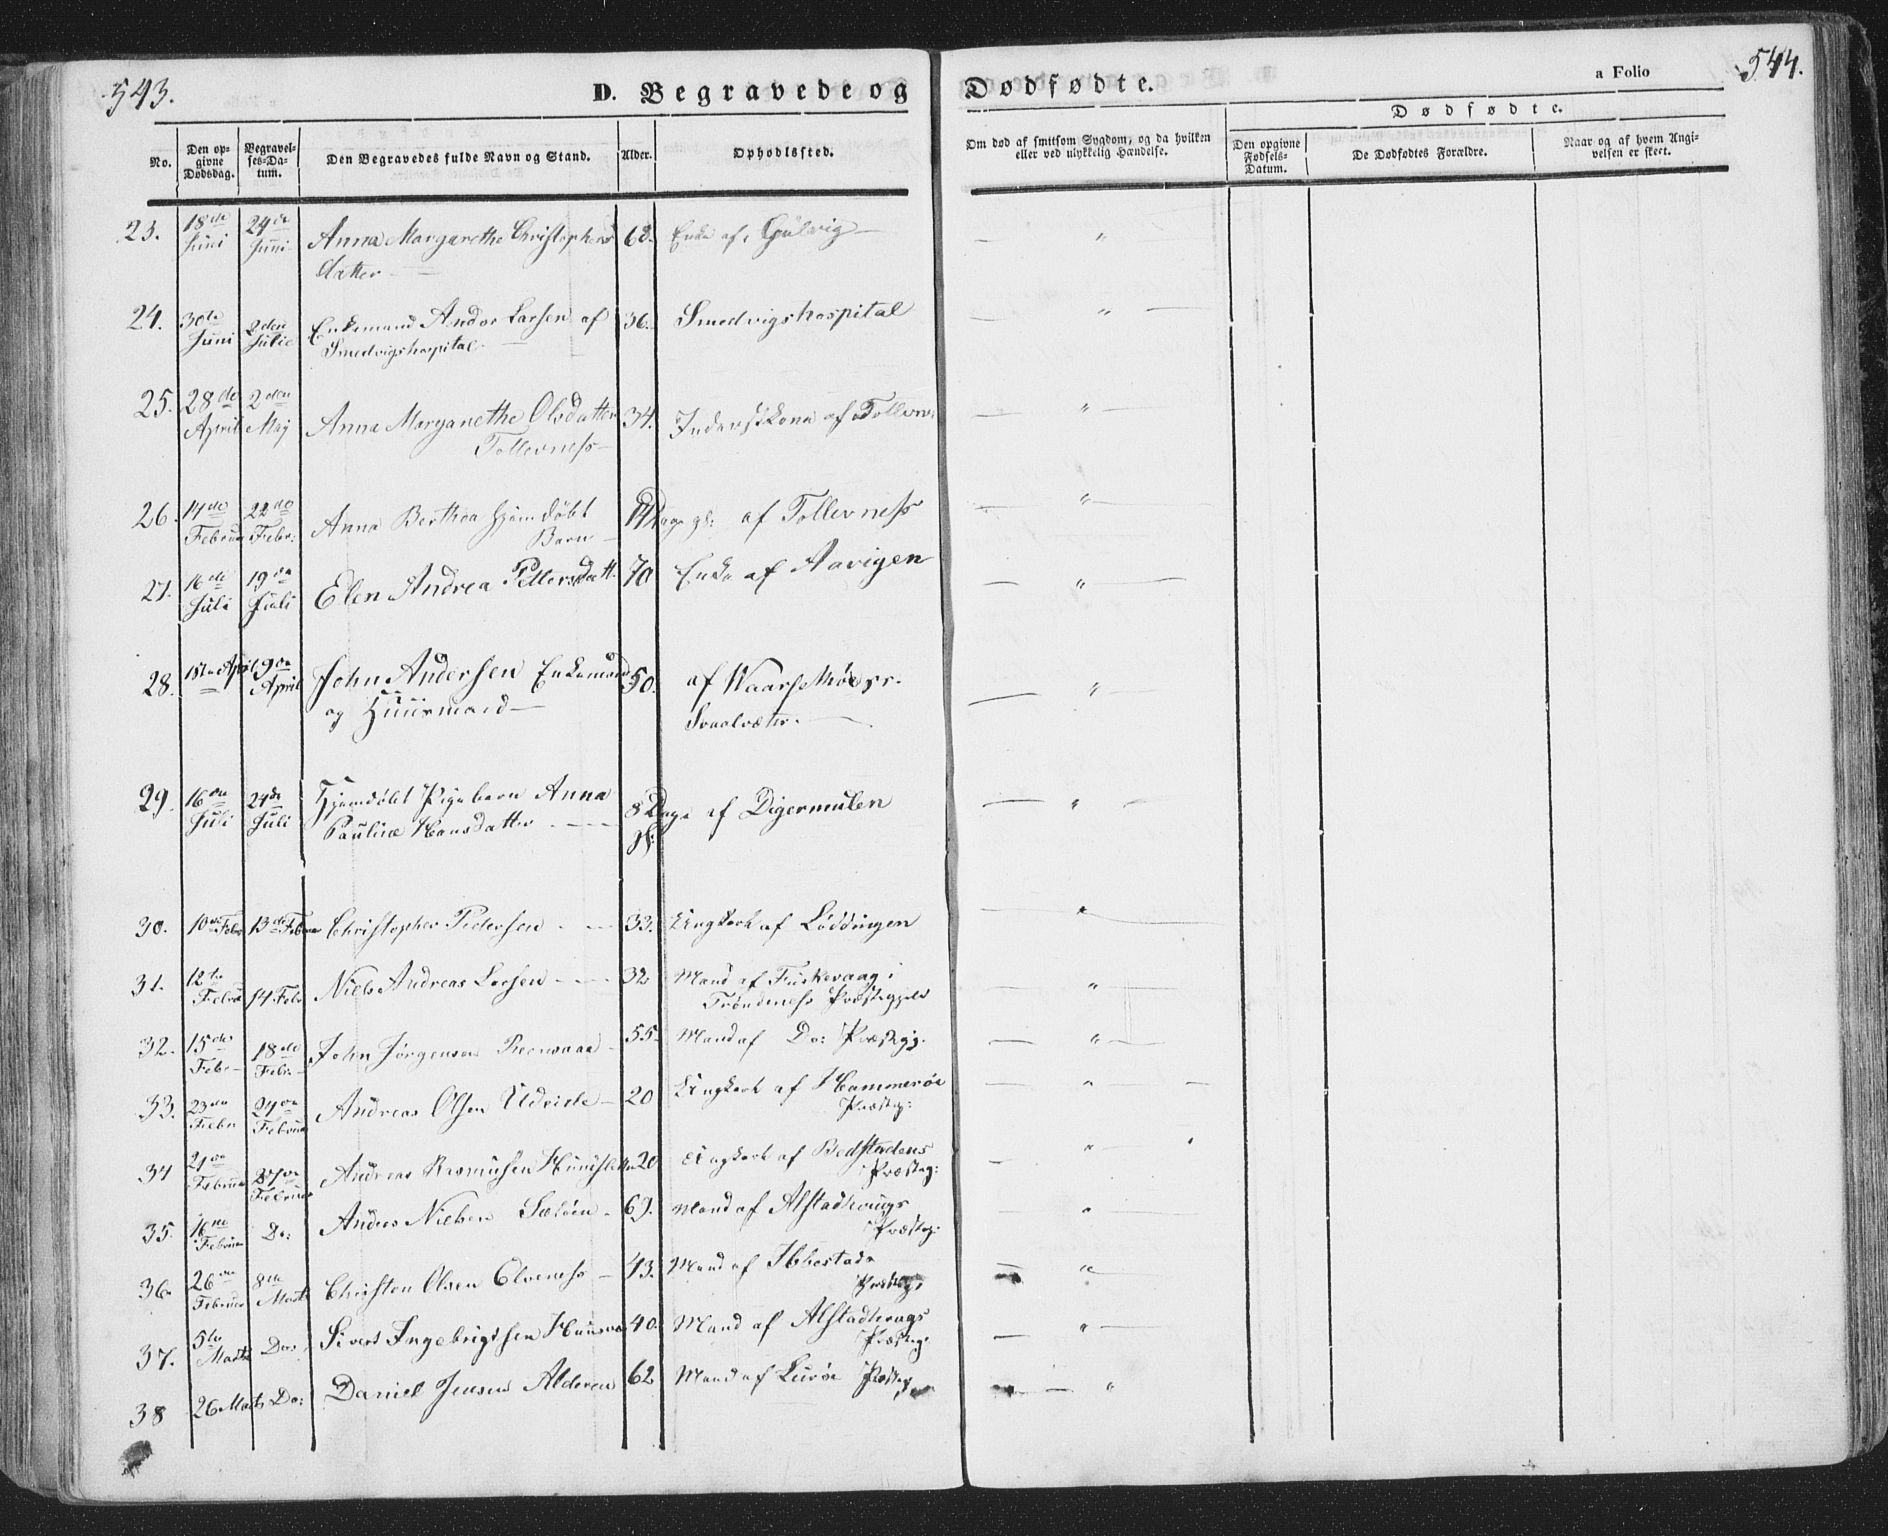 543.
D. Begravede og Dødfødte.
a Folio
544.
No.
Den op-
givne
Dødsdag.
Begravel-
ses-Da-
tum.
Den Begravedes fulde Navn og Stand.
Alder.
Opholdssted.
Om død af smitsom Sygdom, og da hvilken
eller ved ulykkelig Hændelse.
Dødfødte.
Den opgivne
Fødsels-
Datum.
De Dødfødtes Forældre.
Naar og af hvem Angi-
velsen er skeet.
23. 18de Juni 24de Juni Anna Margarethe Christophers 68. Enke af Gulvig — "
datter
24. 30te Juni 2den Julie Enkemand Andor Larsen af 36. Smedvigshospital — "
Smedvigshospital
25. 28de April 2den May Anna Margarethe Olsdatter 34. Inderstkone af Tollevnes — "
Tollevness
26. 14de Februar 22de Febr: Anna Berthea hjemdøbt Dage gl: af Tollevness — "
Barn
27. 16de Juli 19de Juli Elen Andrea Pettersdatt. 70 Enke af Aavigen — "
28. April 9de April John Andersen Enkemand 50. af — "
og Huusmand
29. 16de Juli 24de Juli Hjemdøbt Pigebarn Anna 8 Dage af Digermulen — "
Pauline Hansdatter gl:
30. 10de Febr 13de Februar Christopher Pedersen 33. Ungkarl af Lødingen — "
31. 12te Februar 14 Febr Niels Andreas Larsen 32 Mand af Fuskevaag i — "
Trondeness Præstegjeld
32. 15de Febr 18de Febr. John Jørgensen 55 Mand af Do: Præstegj. — "
33. 23de Febr 27de Februar Andreas Olsen 20 Ungkarl af Hammerøe — "
Præsteg:
34 21de Februar 27de Februar Andreas Rasmusen 20 Ungkarl af Bodstadens — "
Præsteg:
35. 16de Februar Do: Anders Nielsen 69. Mand af Alstadhougs — "
Præsteg:
36. 26de Februar 8de Marts Christen Olsen Elveness 43. Mand af Ibbestads — "
Præsteg:
37. 5te Marts Do: Sivert Ingebrigtsen 40. Mand af Alstadhougs — "
Præsteg:
38 26 Marts Do: Daniel Jensen Alderen 62 Mand af Lurøe Præsteg — "